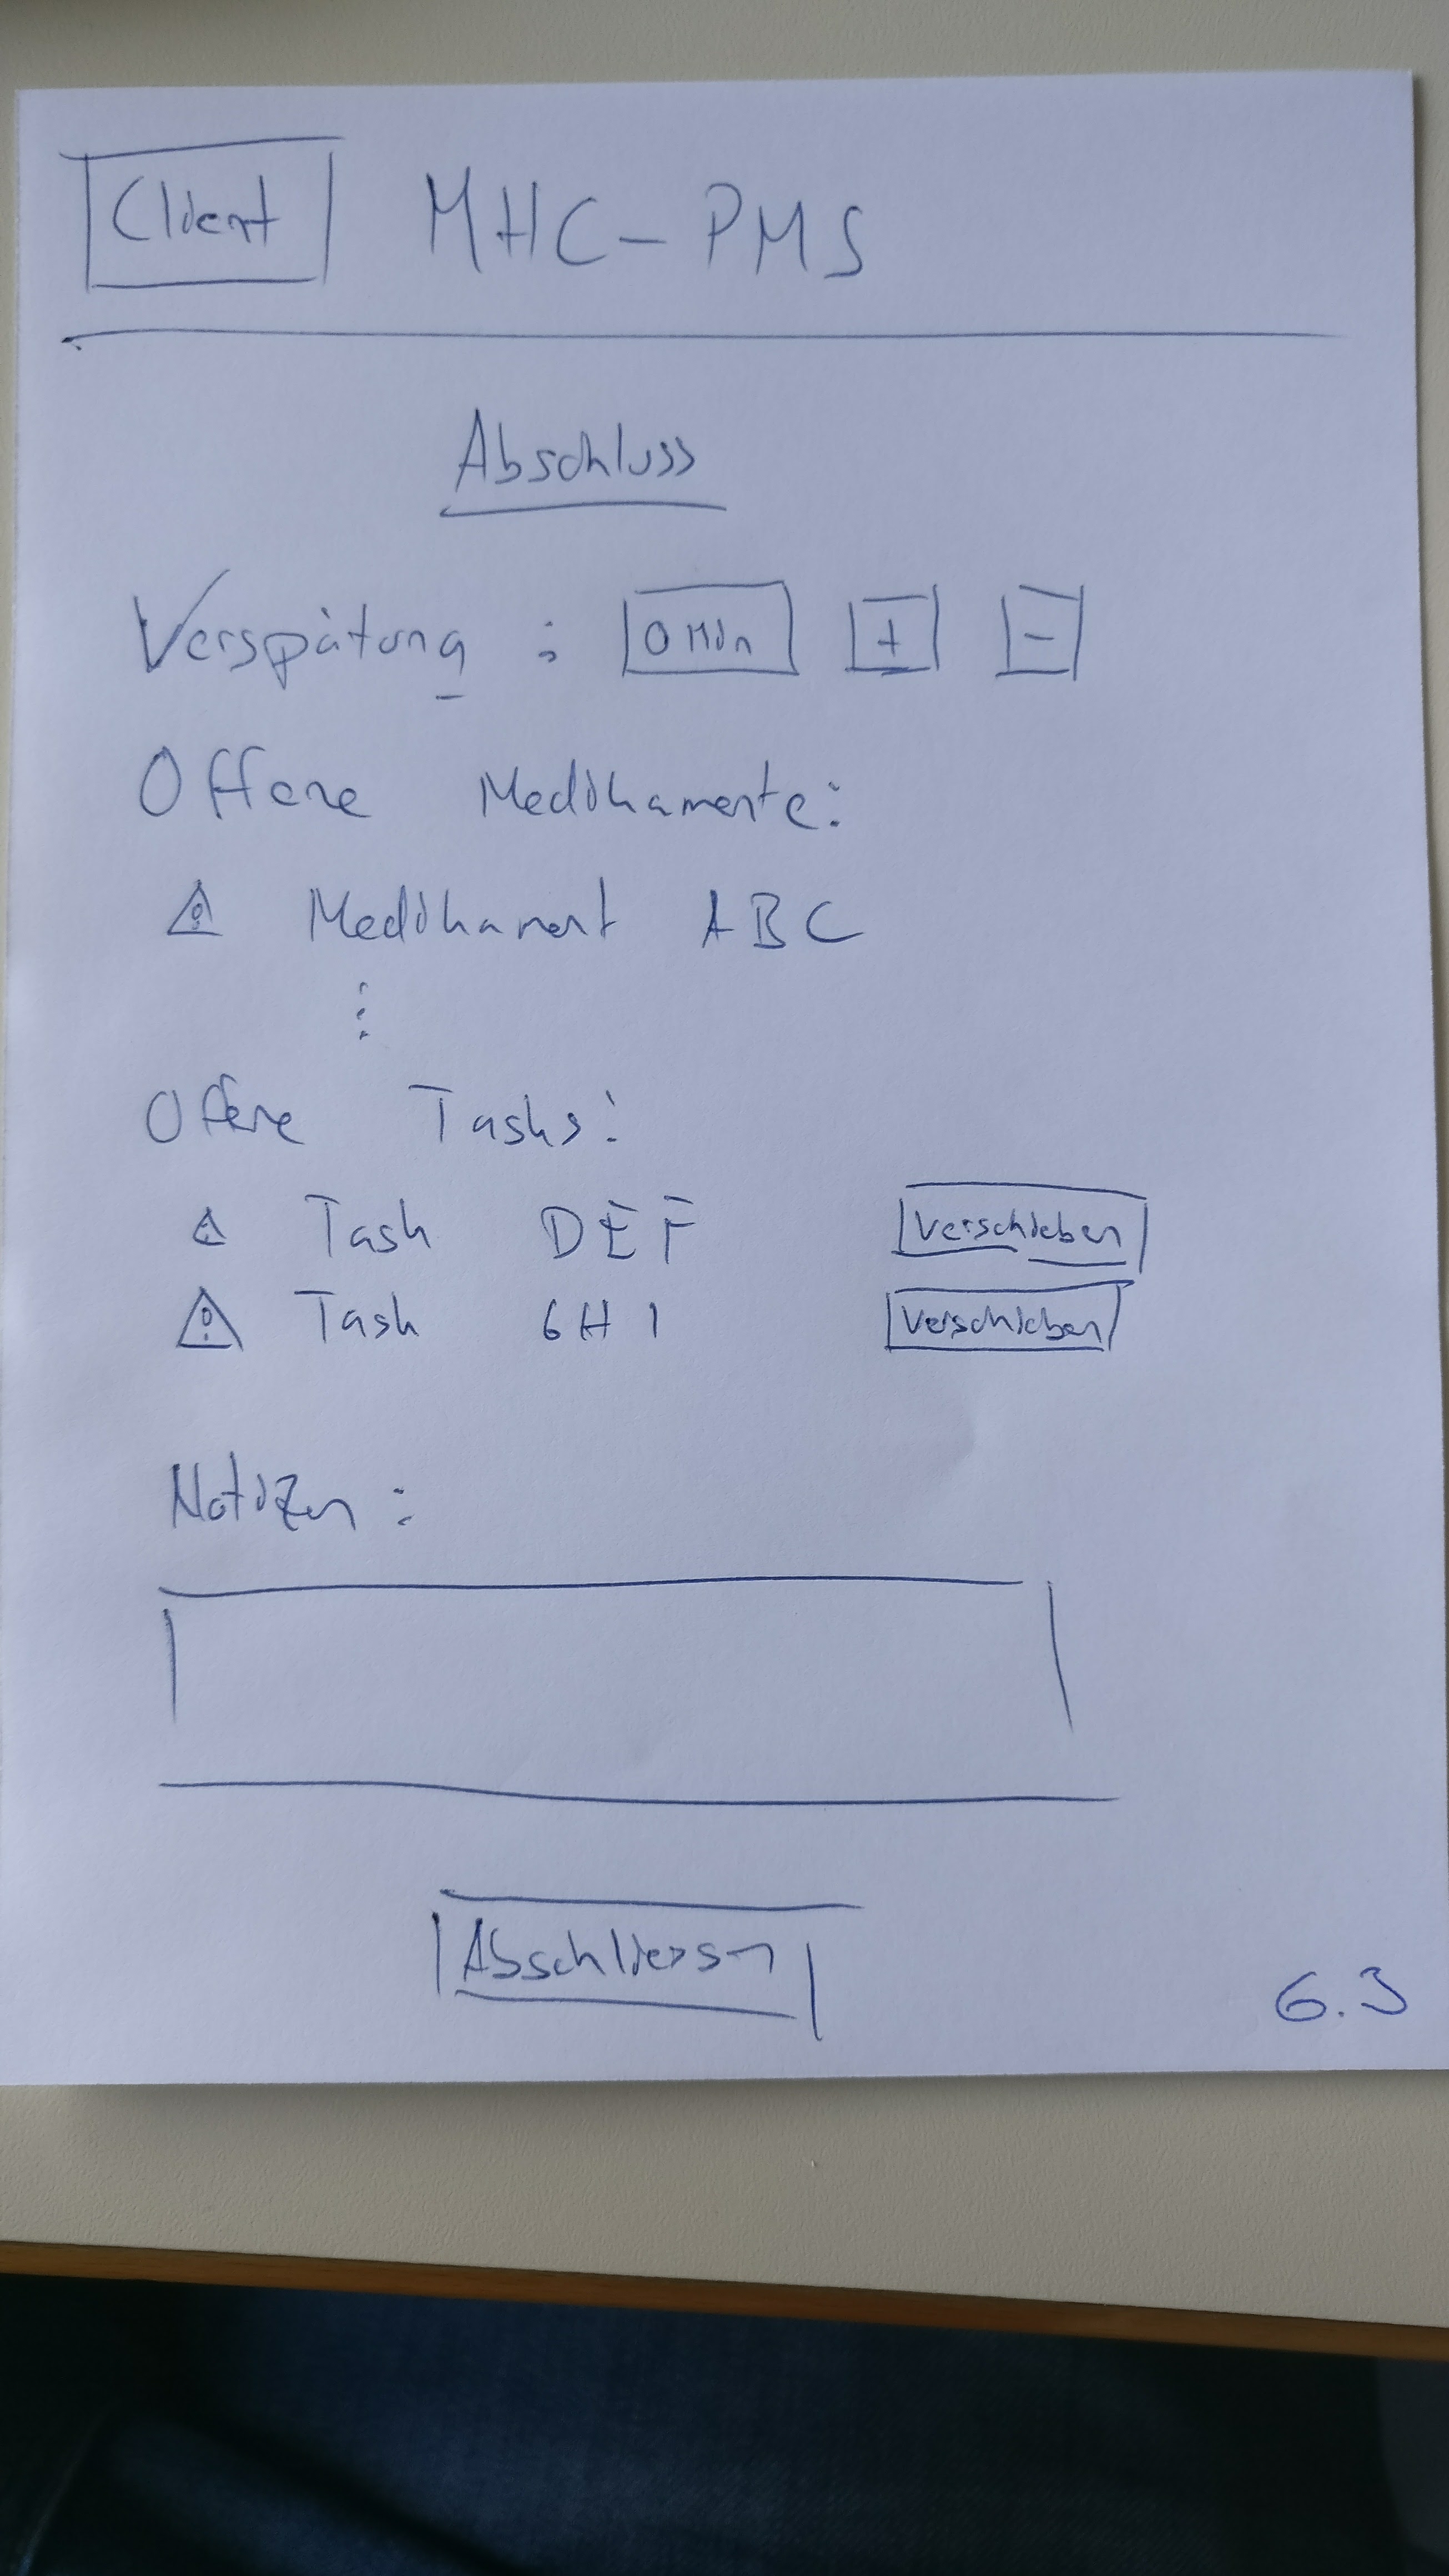 Client MHC-PMS
Abschluss
Verspätung : 0 Min + -
Offene Medikamente:
Medikament ABC
⋮
Offene Tasks:
Task DEF Verschieben
Task GHI Verschieben
Notizen :
Abschliessen
6.3